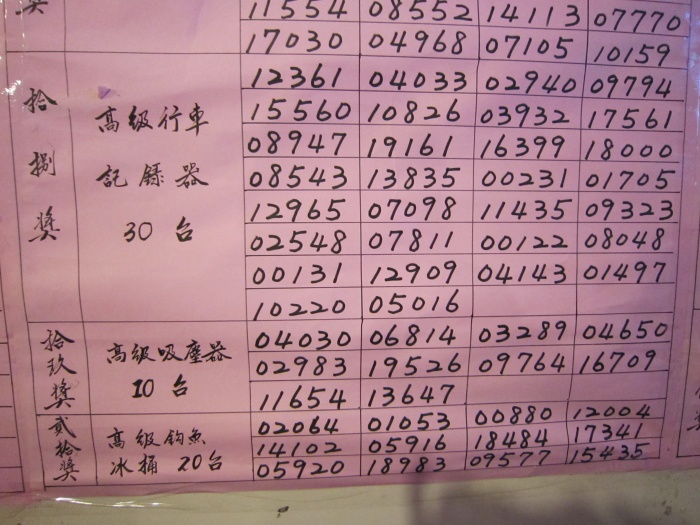 獎
11554 08552 14113 07770
17030 04968 07105 10159
拾捌獎
高級行車
記錄器
30 台
12361 04033 02940 09794
15560 10826 03932 17561
08947 19161 16399 18000
08543 13835 00231 01705
12965 07098 11435 09323
02548 07811 00122 08048
00131 12909 04143 01497
10220 05016
拾玖獎
高級吸塵器
10 台
04030 06814 03289 04650
02983 19526 09764 16709
11654 13647
貳拾獎
高級釣魚
冰桶 20台
02064 01053 00880 12004
14102 05916 18484 17341
05920 18983 09577 15435